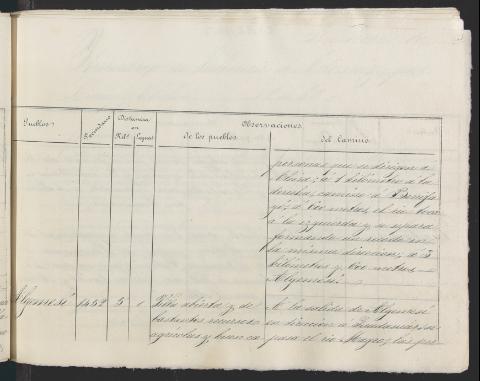 Pueblos
Vecindario
Distancia
en
Kils. Leguas
Observaciones
de los pueblos
del camino
personas que se dirigen á
Alcira; á 1 kilómetro á la
derecha, camino á Benifa
yó; á 600 metros, el rio toca
á la izquierda y se separa
formando un recodo en
la misma direccion; á 3
kilómetros y 600 metros
Algemesí.
Algemesí 1452 5 1
Villa abierta y de
bastantes recursos
agrícolas y buen ca
A la salida de Algemesí
en direccion á Guadasuar se
pasa el rio Magro, las per